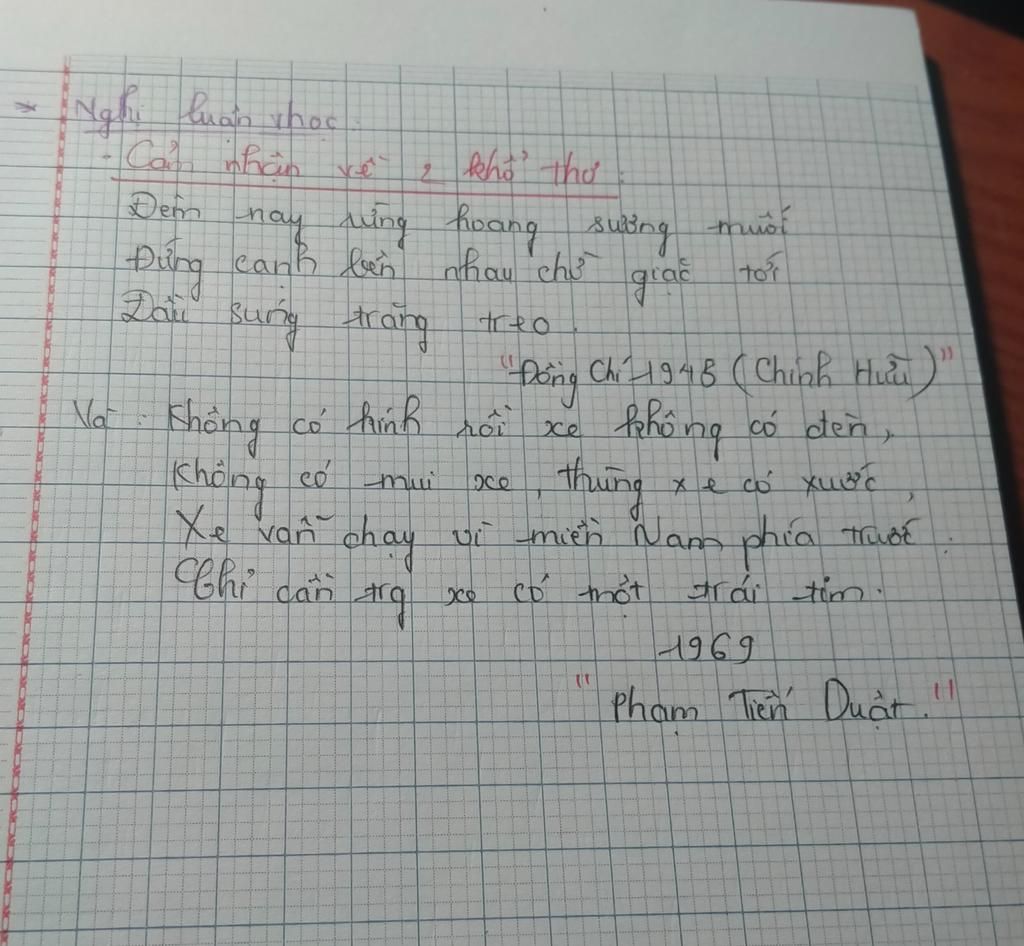 * Nghị luận vhọc.
- Cảm nhận về 2 khổ thơ:
Đêm nay rừng hoang sương muối
Đứng cạnh bên nhau chờ giặc tới
Đầu súng trăng treo.
"Đồng Chí -1948 (Chính Hữu)"
Và: Không có kính rồi xe không có đèn,
Không có mui xe, thùng xe có xước,
Xe vẫn chạy vì miền Nam phía trước.
Chỉ cần trg xe có một trái tim.
1969
"Phạm Tiến Duật."